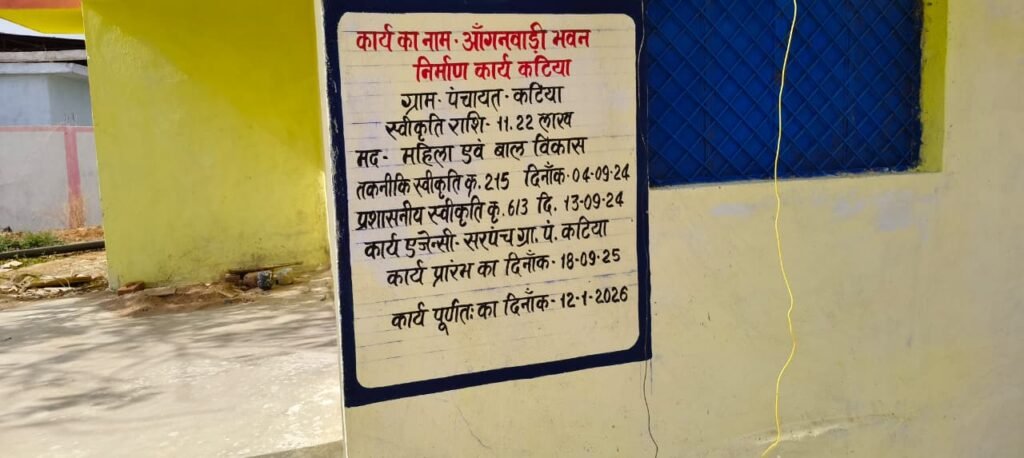 कार्य का नाम - आँगनवाड़ी भवन
निर्माण कार्य कटिया
ग्राम - पंचायत - कटिया
स्वीकृति राशि - 11.22 लाख
मद - महिला एवं बाल विकास
तकनीकि स्वीकृति कृ. 215 दिनाँक - 04-09-24
प्रशासनीय स्वीकृति कृ. 613 दि. 13-09-24
कार्य एजेन्सी - सरपंच ग्रा. पं. कटिया
कार्य प्रारंम का दिनाँक - 18-09-25
कार्य पूर्णतः का दिनाँक - 12-1-2026